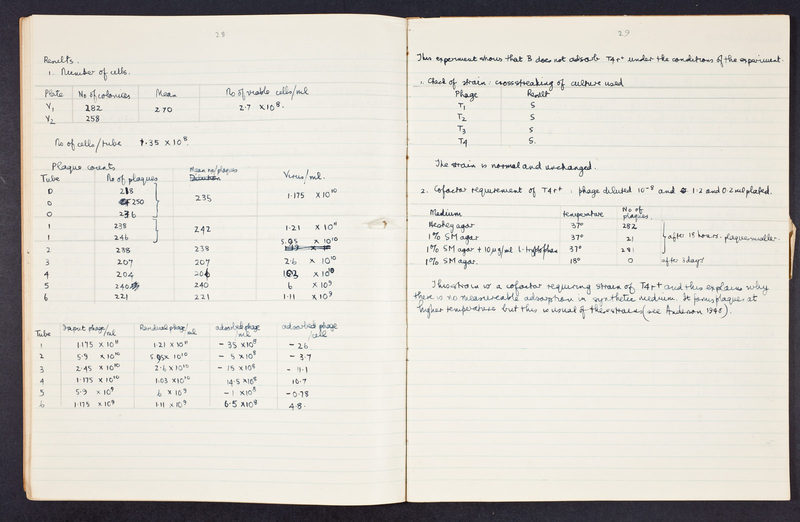 28
Results.
1. Number of cells.
Plate No of colonies Mean No of viable cells/ml
V1 282 270 2.7 × 10⁸.
V2 258
No of cells/tube 1.35 × 10⁸.
Plaque counts
Tube No of plaques Mean no/plaques Virus/ml.
0 218 235 1.175 × 10¹⁰
0 250
0 236
1 238 242 1.21 × 10¹¹
1 246
2 238 238 5.95 × 10¹⁰
3 207 207 2.6 × 10¹⁰
4 204 204 × 10¹⁰
5 240 240 6 × 10⁹
6 221 221 1.11 × 10⁹
Tube Input phage/ml Residual phage/ml adsorbed phage ml adsorbed phage /cell
1 1.175 × 10¹¹ 1.21 × 10¹¹ - 35 ×10⁸ - 26
2 5.9 × 10¹⁰ 5.95 × 10¹⁰ - 5 × 10⁸ - 3.7
3 2.45 × 10¹⁰ 2.6 × 10¹⁰ - 15 × 10⁸ - 11.1
4 1.175 × 10¹⁰ 1.03 × 10¹⁰ 14.5 × 10⁸ 10.7
5 5.9 × 10⁹ 6 × 10⁹ - 1 × 10⁸ - 0.78
6 1.175 × 10⁹ 1.11 × 10⁹ 6.5 × 10⁸ 4.8.
29
This experiment shows that B does not adsorb T4r⁺ under the conditions of the experiment.
1. Check of strain: cross streaking of culture used
Phage Result
T1 S
T2 S
T3 S
T4 S.
The strain is normal and unchanged.
2. Cofactor requirement of T4r⁺ : phage diluted 10⁻⁸ and 1.2 and 0.2 ml plated.
Medium temperature No of plaques.
agar 37° 282
1% SM agar 37° 21 after 18 hours. plaques smaller.
1% SM agar + 10 μg/ml l. tryptophan 37° 281
1% SM agar. 18° 0 after 3 days
This strain is a cofactor requiring strain of T4r⁺ and this explains why
there is no measureable adsorption in synthetic medium. It forms plaques at
higher temperature but this is usual of these strains (see Anderson 1948).